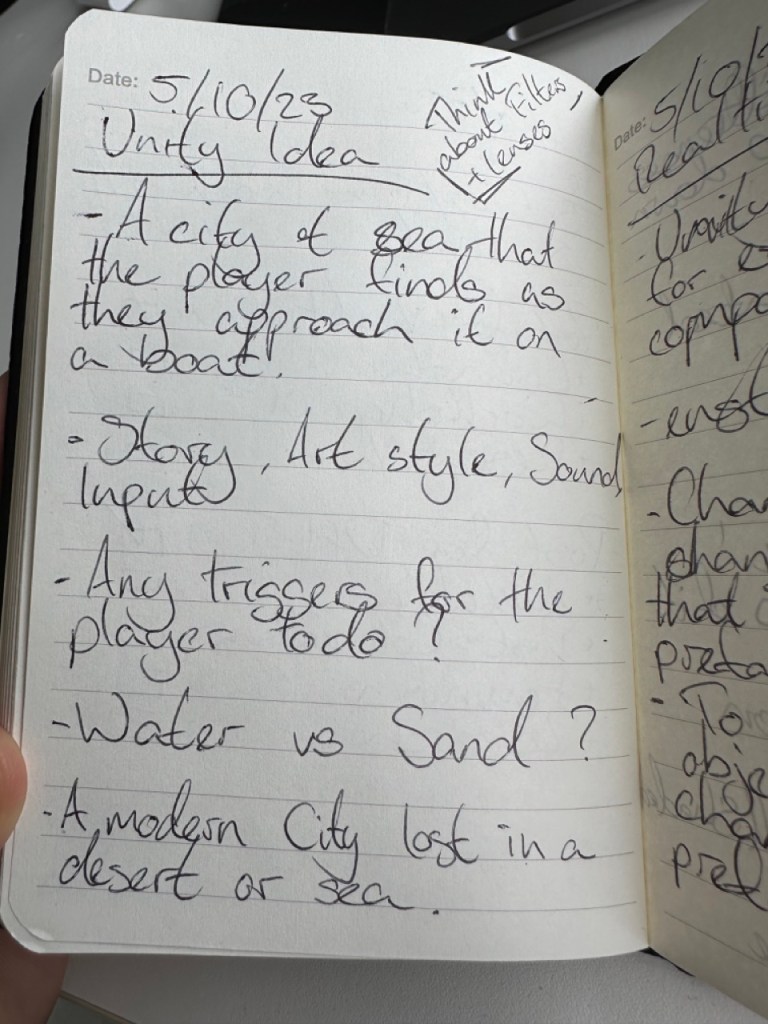 Date: 5/10/23
Unity Idea
Think
about Filters,
+ lenses
- A city of sea that
the player finds as
they approach it on
a boat.
- Story, Art style, Sound,
Inputs
- Any triggers for the
player to do?
- Water vs Sand?
- A modern City lost in a
desert or sea.
Date: 5/10/2
- Unity
for
- Chan
chan
that
prefa
- To
obje
chan
pref